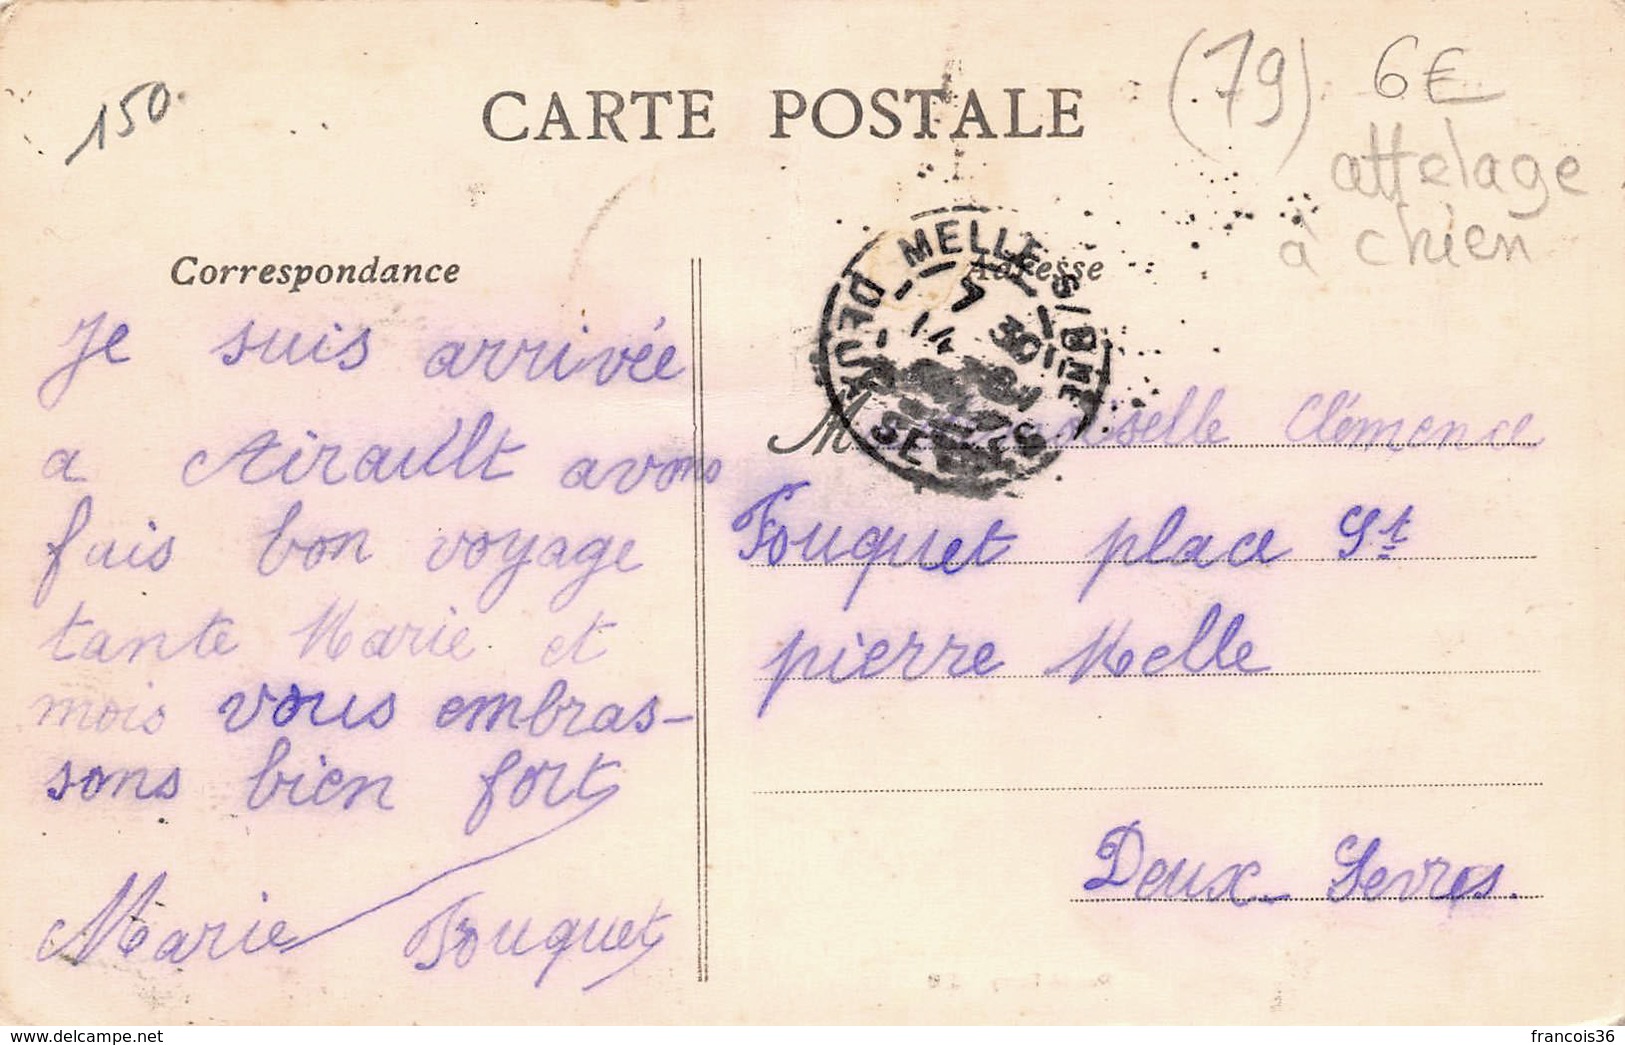 150
CARTE POSTALE
(79) 6€
attelage
à chien
Correspondance
Adresse
MELLE S/BNE
7
14 30
DEUX SEVRES
Je suis arrivée
a Airault avons
fais bon voyage
tante Marie et
mois vous embras-
sons bien fort
Marie Fouquet
M oiselle Clémence
Fouquet place St
pierre Melle
Deux-Sevres.
delcampe.net
francois36